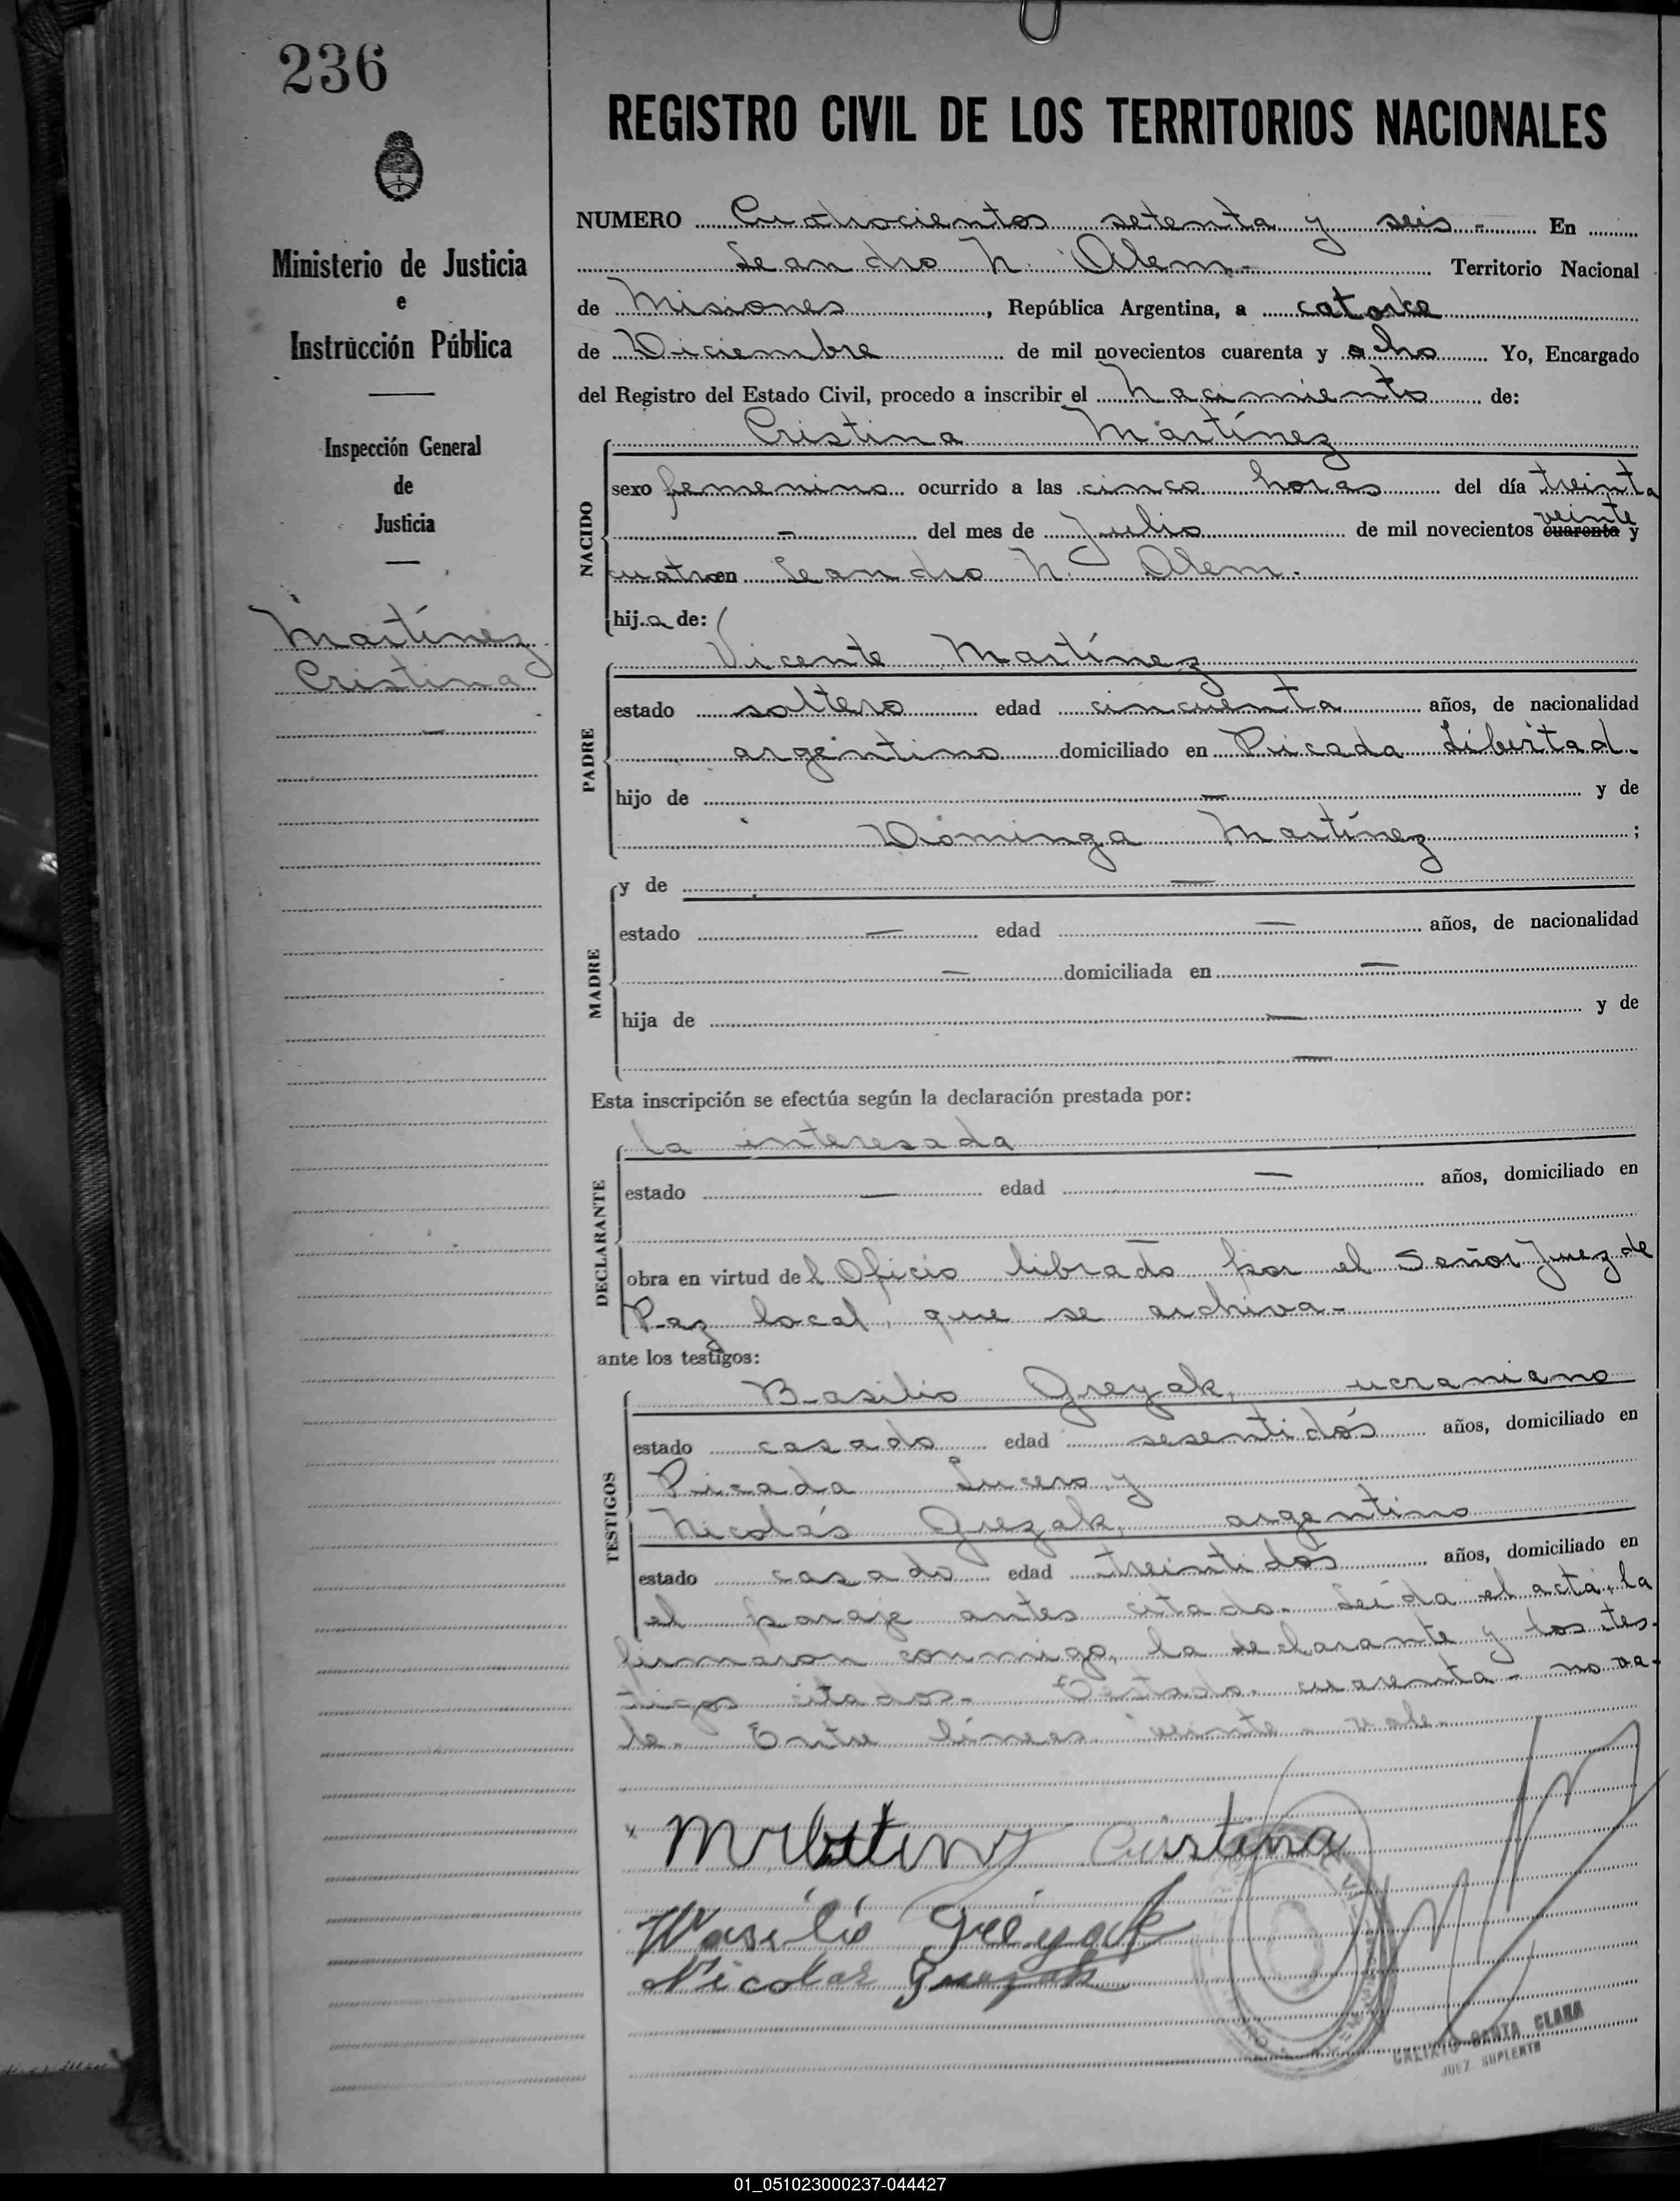 236
REGISTRO CIVIL DE LOS TERRITORIOS NACIONALES
Ministerio de Justicia
e
Instrucción Pública
Inspección General
de
Justicia
Martínez
Cristina
NUMERO Cuatrocientos setenta y seis - En
Leandro N. Alem.- Territorio Nacional
de Misiones, República Argentina, a catorce
de Diciembre de mil novecientos cuarenta y ocho Yo, Encargado
del Registro del Estado Civil, procedo a inscribir el nacimiento de:
NACIDO
Cristina Martínez
sexo femenino ocurrido a las cinco horas del día treinta
veinte
- del mes de Julio de mil novecientos cuarenta y
cuatro en Leandro N. Alem.
hij.a de:
PADRE
Vicente Martínez
estado soltero edad cincuenta años, de nacionalidad
argentino domiciliado en Picada Libertad.
hijo de — y de
Dominga Martínez ;
MADRE
y de —
estado — edad — años, de nacionalidad
— domiciliada en —
hija de — y de
—
Esta inscripción se efectúa según la declaración prestada por:
DECLARANTE
la interesada
estado — edad — años, domiciliado en
—
obra en virtud del Oficio librado por el Señor Juez de
Paz local, que se archiva-
ante los testigos:
TESTIGOS
Basilio Greyak, ucraniano
estado casado edad sesentidós años, domiciliado en
Picada Lucero y
Nicolás Grezak, argentino
estado casado edad treintidós años, domiciliado en
el paraje antes citado. Leída el acta, la
firmaron conmigo, la declarante y los tes-
tigos citados. Testado. cuarenta - no va-
le. Entre líneas: veinte - vale.
Martinez Cristina
Wasilio Greyak
Nicolas Grezak
CALIXTO SANTA CLARA
JUEZ SUPLENTE
01_051023000237-044427